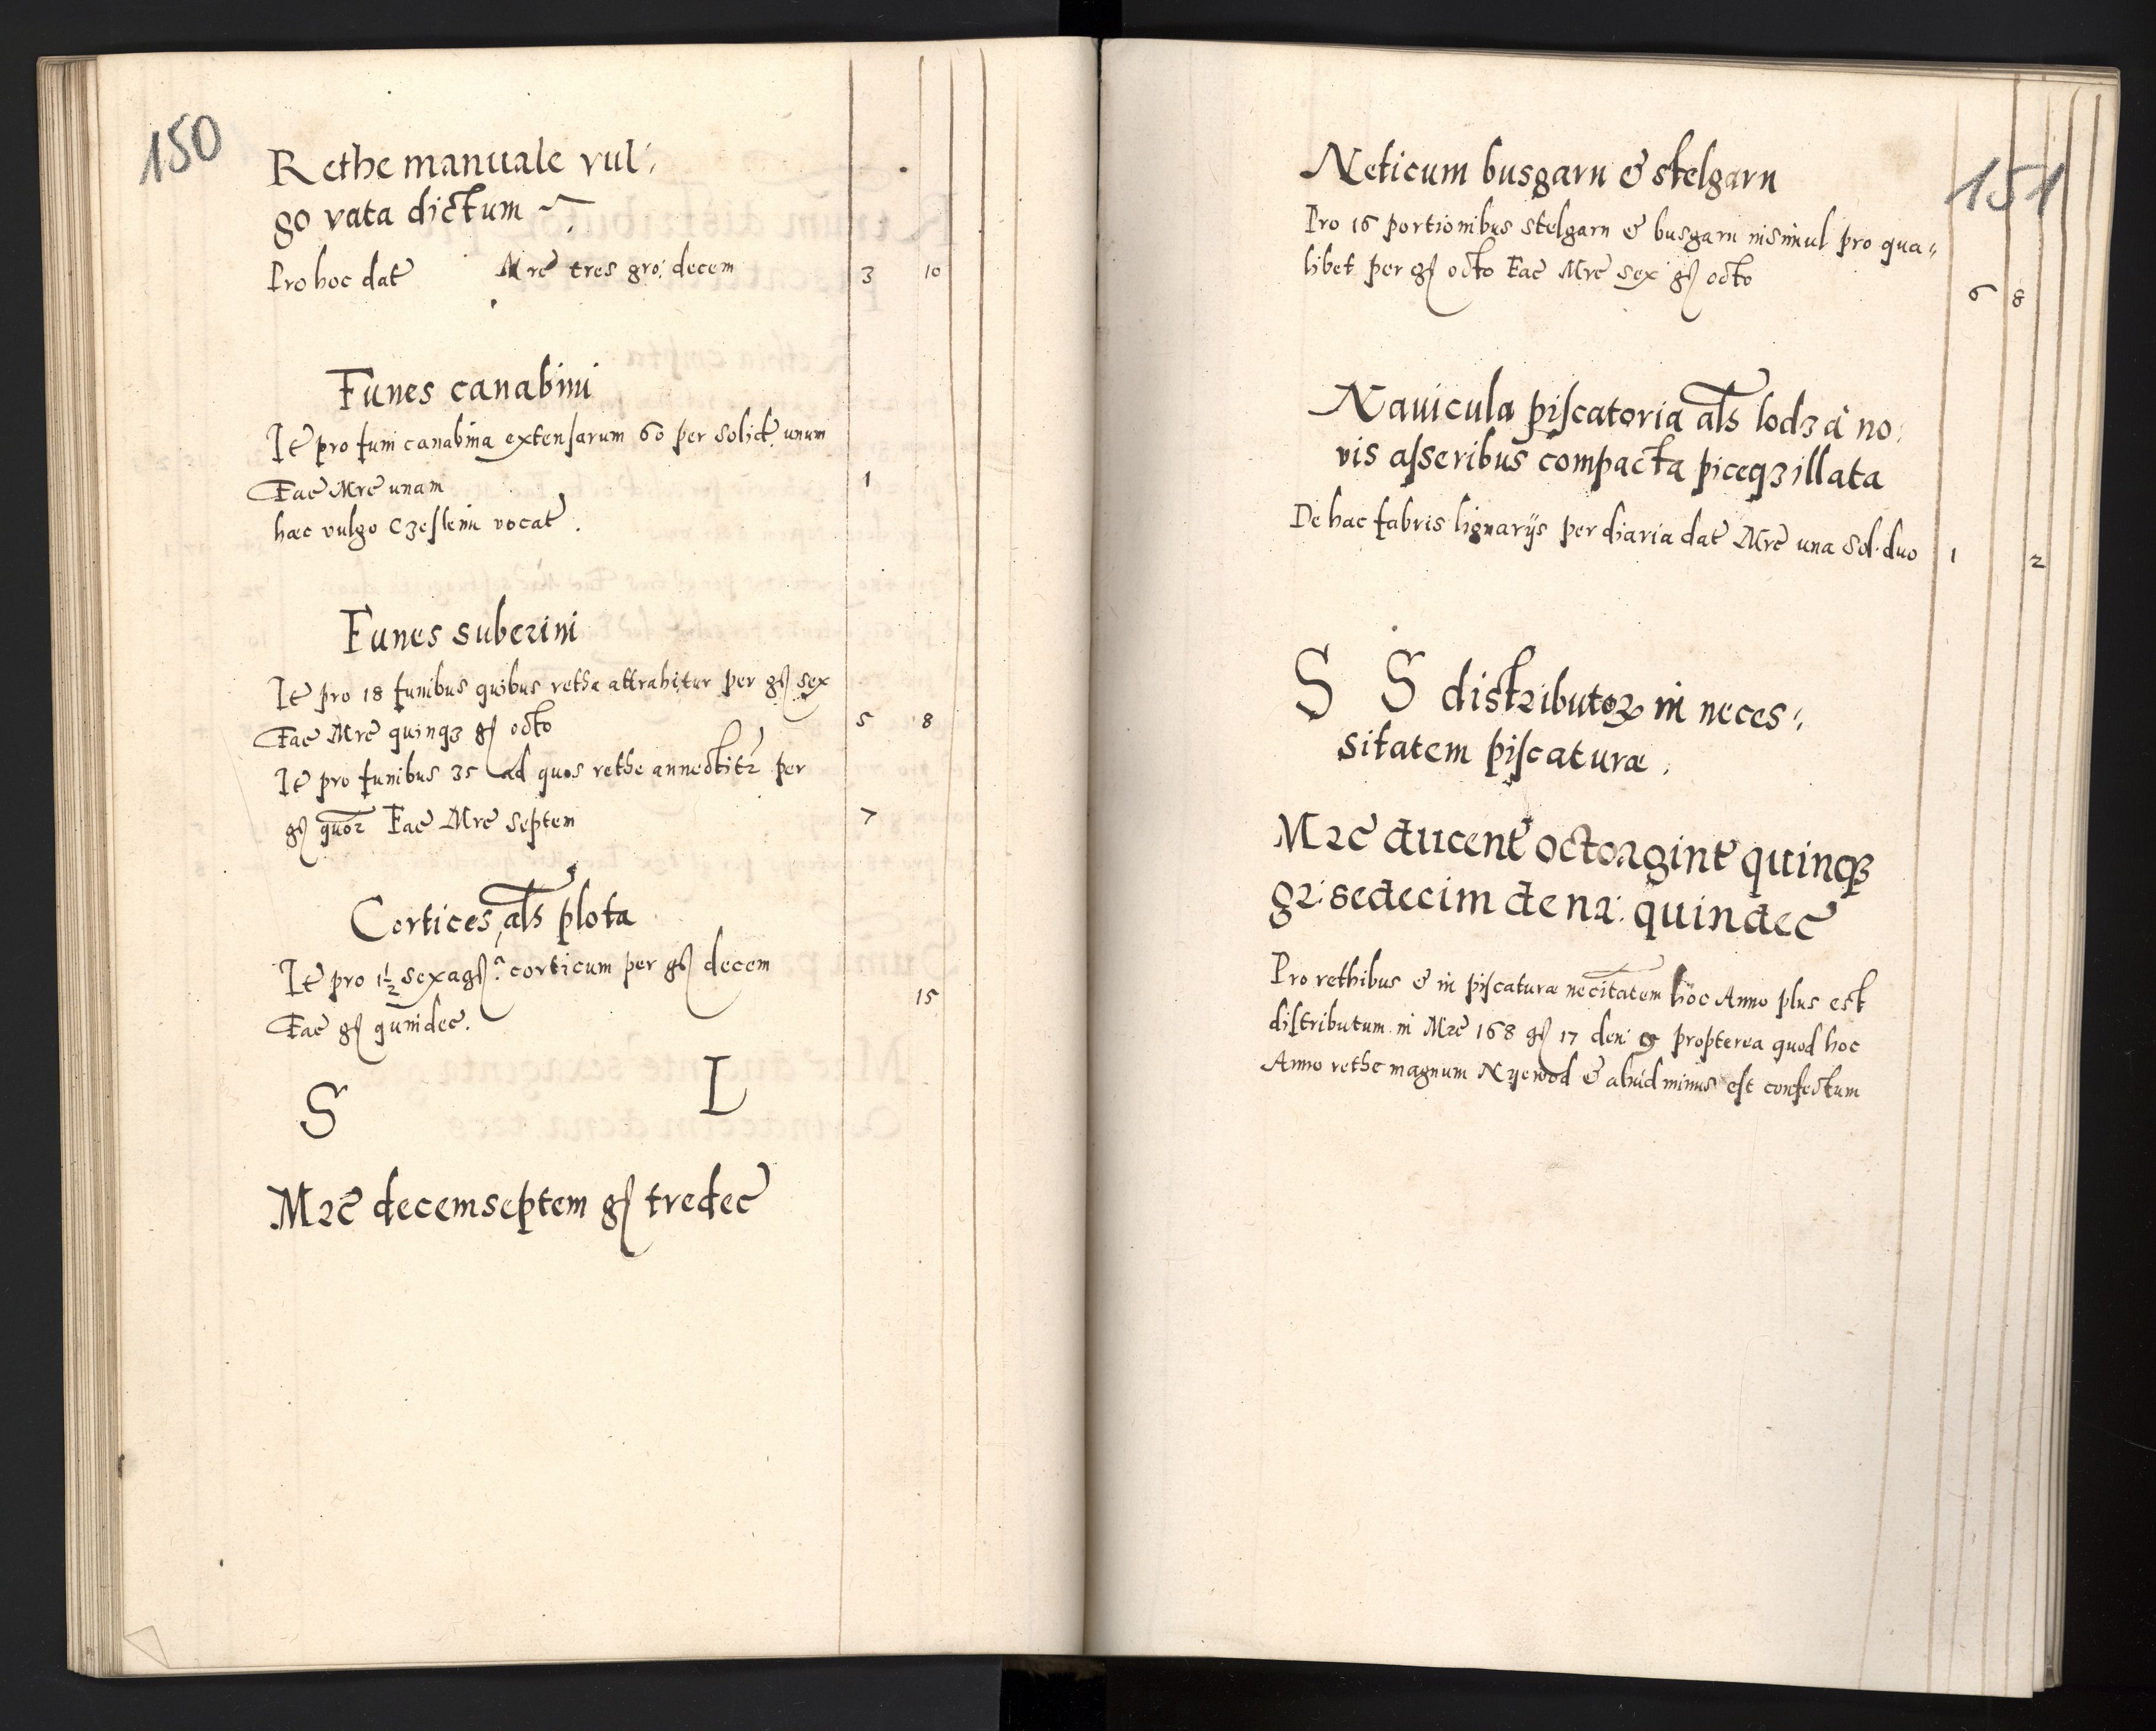 150
Rethe manuale vul:
go vata dictum
Pro hoc dat̃ Mrẽ tres gro: decem 3 10
Funes canabini
It̃ pro funi canabina extensarum 60 per solid. unum
Facẽ Mrẽ unam 1
hæc vulgo Czeslenii vocat̃.
Funes suberini
It̃ pro 18 funibus quibus retha attrahitur per gſ sex
Facẽ Mrẽ quinqꝫ gſ octo 5 8
It̃ pro funibus 35 ad quos rethe annectitr̃ per
gſ quor̃ Facẽ Mrẽ septem 7
Cortices, als̃ plota
It̃ pro 1½ sexagſ.ª corticum per gſ decem
Facẽ gſ quindec̃. 15
S L
Mrẽ decemseptem gſ tredec̃
151
Neticum busgarn & stelgarn
Pro 16 portionibus stelgarn & busgarn insimul pro qua:
libet per gſ octo Facẽ Mrẽ sex gſ octo 6 8
Nauicula piscatoria als̃ lodz à no:
vis asseribus compacta piceqꝫ illata
De hac fabris lignarijs per diaria dat̃ Mrẽ una sol. duo 1 2
S S distributoꝝ in neces:
sitatem piscaturæ.
Mrẽ ducent̃ octoagint̃ quinqꝫ
gr: sedecim denar: quindec̃
Pro rethibus & in piscaturæ necitatem hoc Anno plus est
distributum in Mrẽ 168 gſ 17 den: 9 propterea quod hoc
Anno rethe magnum Nyewod & aliud minus est confectum